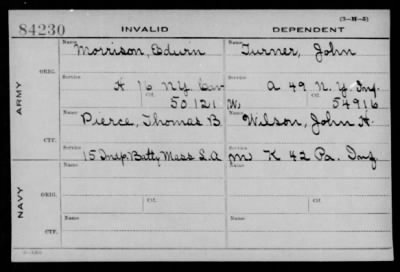 (3-M-5)
84230 INVALID DEPENDENT
Name Name
Morrison, Edwin Turner, John
ORIG.
Service Service
A 16 N.Y. Cav A 49 N.Y. Inf.
Ctf. Ctf.
50121 W. 54916
ARMY
Name Name
Pierce, Thomas B. Wilson, John H.
CTF.
Service Service
15 Indp. Batty Mass L.A. M K 42 Pa. Inf.
Name Name
ORIG.
Service Ctf. Service Ctf.
NAVY
Name Name
CTF.